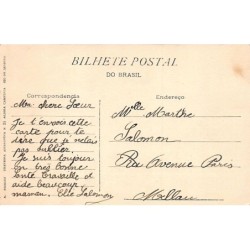 BILHETE POSTAL
DO BRASIL
Correspondencia
Endereço
Ma chere Sœur
Je t'envois cette
carte pour te
dire que je n'etais
pas oublier.
Je suis toujour
en tres bonne
sante travaille et
aide beaucoup
maman. Elle Salomon
Mlle Marthe
Salomon
Rue Avenue Paris
Millau